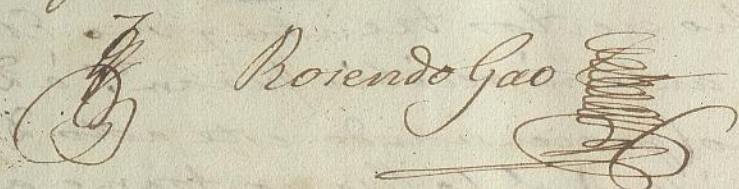 Rosendo Gao